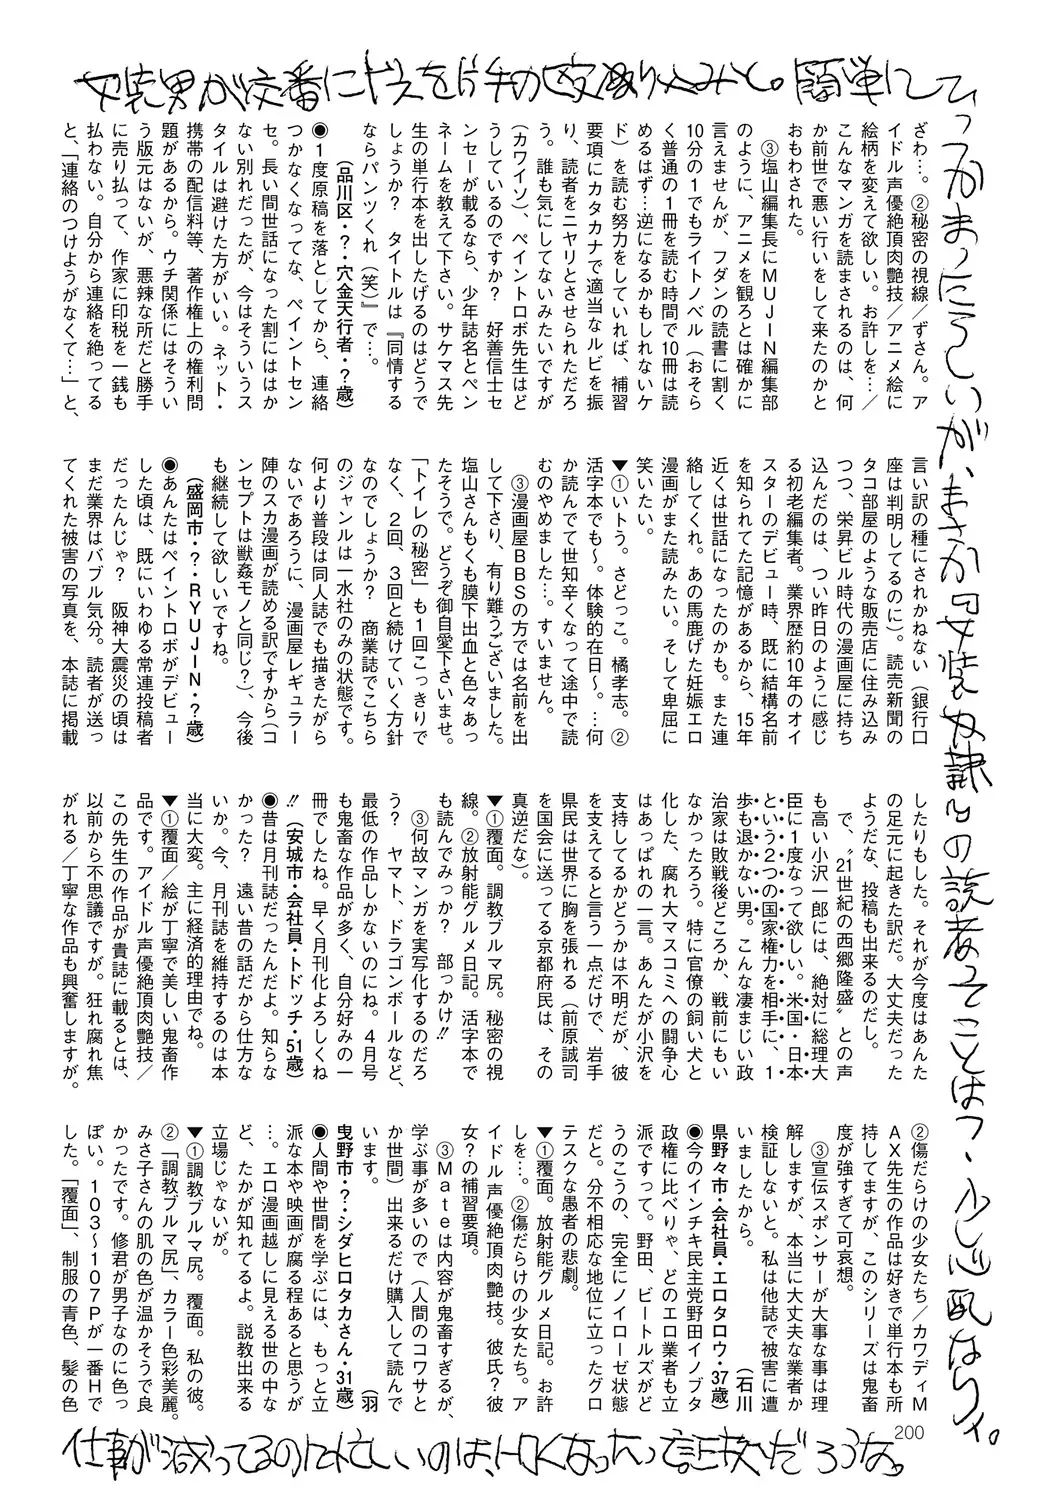 ざわ…。②秘密の視線／ずさん。ア
イドル声優絶頂肉艶技／アニメ絵に
絵柄を変えて欲しい。お許しを…／
こんなマンガを読まされるのは、何
か前世で悪い行いをして来たのかと
おもわされた。
③塩山編集長にＭＵＪＩＮ編集部
のように、アニメを観ろとは確かに
言えませんが、フダンの読書に割く
10分の１でもライトノベル（おそら
く普通の１冊を読む時間で10冊は読
めるはず…逆になるかもしれないケ
ド）を読む努力をしていれば、補習
要項にカタカナで適当なルビを振
り、読者をニヤリとさせられただろ
う。誰も気にしてないみたいですが
（カワイソ）、ペイントロボ先生はど
うしているのですか？　好善信士セ
ンセーが載るなら、少年誌名とペン
ネームを教えて下さい。サケマス先
生の単行本を出したげるのはどうで
しょうか？　タイトルは『同情する
ならパンツくれ（笑）』で…。
（品川区・？・穴金天行者・？歳）
◉１度原稿を落としてから、連絡
つかなくなってな、ペイントセン
セ。長い間世話になった割にははか
ない別れだったが、今はそういうス
タイルは避けた方がいい。ネット・
携帯の配信料等、著作権上の権利問
題があるから。ウチ関係にはそうい
う版元はないが、悪辣な所だと勝手
に売り払って、作家に印税を一銭も
払わない。自分から連絡を絶ってる
と、「連絡のつけようがなくて…」と、
言い訳の種にされかねない（銀行口
座は判明してるのに）。読売新聞の
タコ部屋のような販売店に住み込み
つつ、栄昇ビル時代の漫画屋に持ち
込んだのは、つい昨日のように感じ
る初老編集者。業界歴約10年のオイ
スターのデビュー時、既に結構名前
を知られてた記憶があるから、15年
近くは世話になったのかも。また連
絡してくれ。あの馬鹿げた妊娠エロ
漫画がまた読みたい。そして卑屈に
笑いたい。
▼①いトう。さどっこ。橘孝志。②
活字本でも〜。体験的在日〜。…何
か読んでて世知辛くなって途中で読
むのやめました…。すいません。
③漫画屋ＢＢＳの方では名前を出
して下さり、有り難うございました。
塩山さんもくも膜下出血と色々あっ
たそうで。どうぞ御自愛下さいませ。
「トイレの秘密」も１回こっきりで
なく、２回、３回と続けていく方針
なのでしょうか？　商業誌でこちら
のジャンルは一水社のみの状態です。
何より普段は同人誌でも描きたがら
ないであろうに、漫画屋レギュラー
陣のスカ漫画が読める訳ですから（コ
ンセプトは獣姦モノと同じ？）、今後
も継続して欲しいですね。
（盛岡市・？・ＲＹＵＪＩＮ・？歳）
◉あんたはペイントロボがデビュー
した頃は、既にいわゆる常連投稿者
だったんじゃ？　阪神大震災の頃は
まだ業界はバブル気分。読者が送っ
てくれた被害の写真を、本誌に掲載
したりもした。それが今度はあんた
の足元に起きた訳だ。大丈夫だった
ようだな、投稿も出来るのだし。
で、〝21世紀の西郷隆盛〟との声
も高い小沢一郎には、絶対に総理大
臣に１度なって欲しい。米国・日本
という２つの国家権力を相手に、１
歩も退かない男。こんな凄まじい政
治家は敗戦後どころか、戦前にもい
なかったろう。特に官僚の飼い犬と
化した、腐れ大マスコミへの闘争心
はあっぱれの一言。あんたが小沢を
支持してるかどうかは不明だが、彼
を支えてると言う一点だけで、岩手
県民は世界に胸を張れる（前原誠司
を国会に送ってる京都府民は、その
真逆だな）。
▼①覆面。調教ブルマ尻。秘密の視
線。②放射能グルメ日記。活字本で
も読んでみっか？　部っかけ!!
③何故マンガを実写化するのだろ
う？　ヤマト、ドラゴンボールなど、
最低の作品しかないのにね。４月号
も鬼畜な作品が多く、自分好みの一
冊でしたね。早く月刊化よろしくね
!!（安城市・会社員・トドッチ・51歳）
◉昔は月刊誌だったんだよ。知らな
かった？　遠い昔の話だから仕方な
いか。今、月刊誌を維持するのは本
当に大変。主に経済的理由でね。
▼①覆面／絵が丁寧で美しい鬼畜作
品です。アイドル声優絶頂肉艶技／
この先生の作品が貴誌に載るとは、
以前から不思議ですが。狂れ腐れ焦
がれる／丁寧な作品も興奮しますが。
②傷だらけの少女たち／カワディＭ
ＡＸ先生の作品は好きで単行本も所
持してますが、このシリーズは鬼畜
度が強すぎて可哀想。
③宣伝スポンサーが大事な事は理
解しますが、本当に大丈夫な業者か
検証しないと。私は他誌で被害に遭
いましたから。　　　　　（石川
県野々市・会社員・エロタロウ・37歳）
◉今のインチキ民主党野田イノブタ
政権に比べりゃ、どのエロ業者も立
派ですって。野田、ビートルズがど
うのこうの、完全にノイローゼ状態
だと。分不相応な地位に立ったグロ
テスクな愚者の悲劇。
▼①覆面。放射能グルメ日記。お許
しを…。②傷だらけの少女たち。ア
イドル声優絶頂肉艶技。彼氏？彼
女？の補習要項。
③Ｍａｔｅは内容が鬼畜すぎるが、
学ぶ事が多いので（人間のコワサと
か世間）出来るだけ購入して読んで
います。　　　　　　　　　（羽
曳野市・？・シダヒロタカさん・31歳）
◉人間や世間を学ぶには、もっと立
派な本や映画が腐る程あると思うが
…。エロ漫画越しに見える世の中な
ど、たかが知れてるよ。説教出来る
立場じゃないが。
▼①調教ブルマ尻。覆面。私の彼。
②「調教ブルマ尻」、カラー色彩美麗。
みさ子さんの肌の色が温かそうで良
かったです。修君が男子なのに色っ
ぽい。１０３〜１０７Ｐが一番Ｈで
した。「覆面」、制服の青色、髪の色
200
仕事が減ってるのに忙しいのは、トロくなったって証拠だろうな。